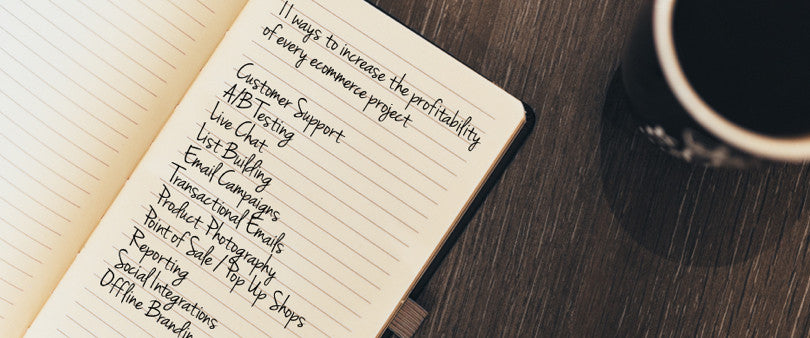 11 ways to increase the profitability
of every ecommerce project
Customer Support
A/B Testing
Live Chat
List Building
Email Campaigns
Transactional Emails
Product Photography
Point of Sale / Pop Up Shops
Reporting
Social Integrations
Offline